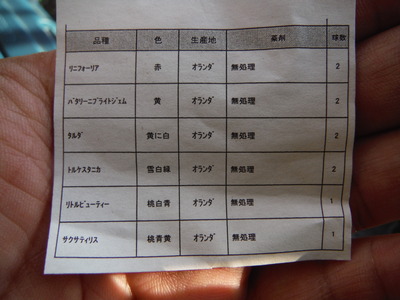 品種 色 生産地 薬剤 球数
リニフォーリア 赤 オランダ 無処理 2
バタリーニブライトジェム 黄 オランダ 無処理 2
タルダ 黄に白 オランダ 無処理 2
トルケスタニカ 雪白緑 オランダ 無処理 2
リトルビューティー 桃白青 オランダ 無処理 1
サクサティリス 桃青黄 オランダ 無処理 1